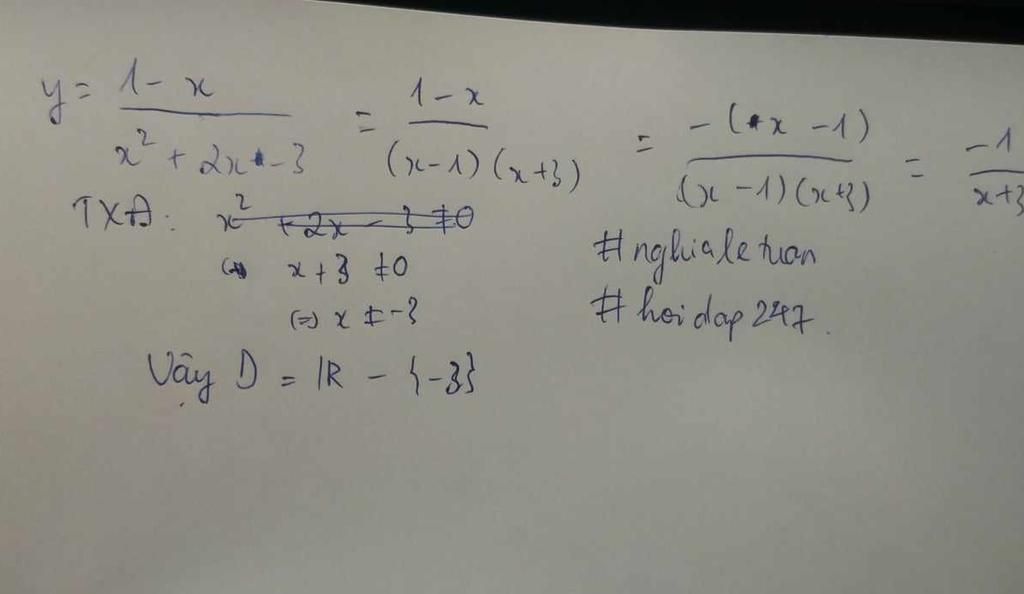 y = (1 - x)/(x² + 2x - 3) = (1 - x)/((x-1)(x+3)) = (-(x - 1))/((x - 1)(x+3)) = -1/(x+3
TXĐ: x² + 2x - 3 ≠ 0
(=) x + 3 ≠ 0
(=) x ≠ -3
Vậy D = R - {-3}
#nghialetuan
#hoidap247.